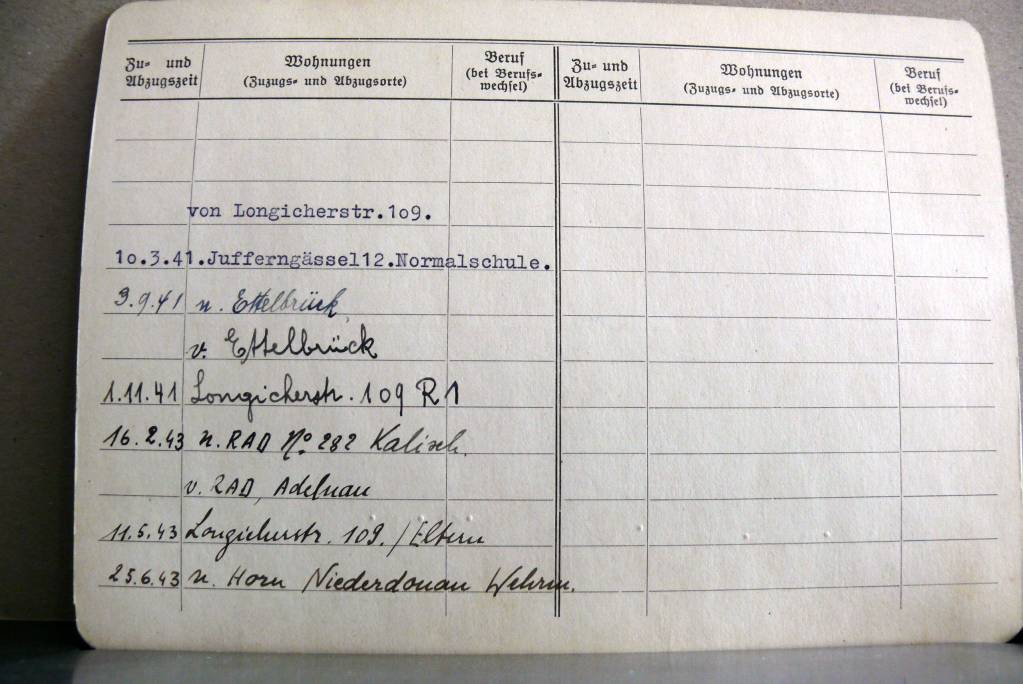 Zu- und Abzugszeit
Wohnungen
(Zuzugs- und Abzugsorte)
Beruf
(bei Berufs-
wechsel)
Zu- und Abzugszeit
Wohnungen
(Zuzugs- und Abzugsorte)
Beruf
(bei Berufs-
wechsel)
von Longicherstr.1o9.
1o.3.41.Jufferngässel12.Normalschule.
3.9.41 n. Ettelbrück
v. Ettelbrück
1.11.41 Longicherstr. 109 R1
16.2.43 n. RAD No 282 Kalisch.
v. RAD, Adelnau
11.5.43 Longicherstr. 109. / Eltern
25.6.43 n. Horn Niederdonau Wehrm.